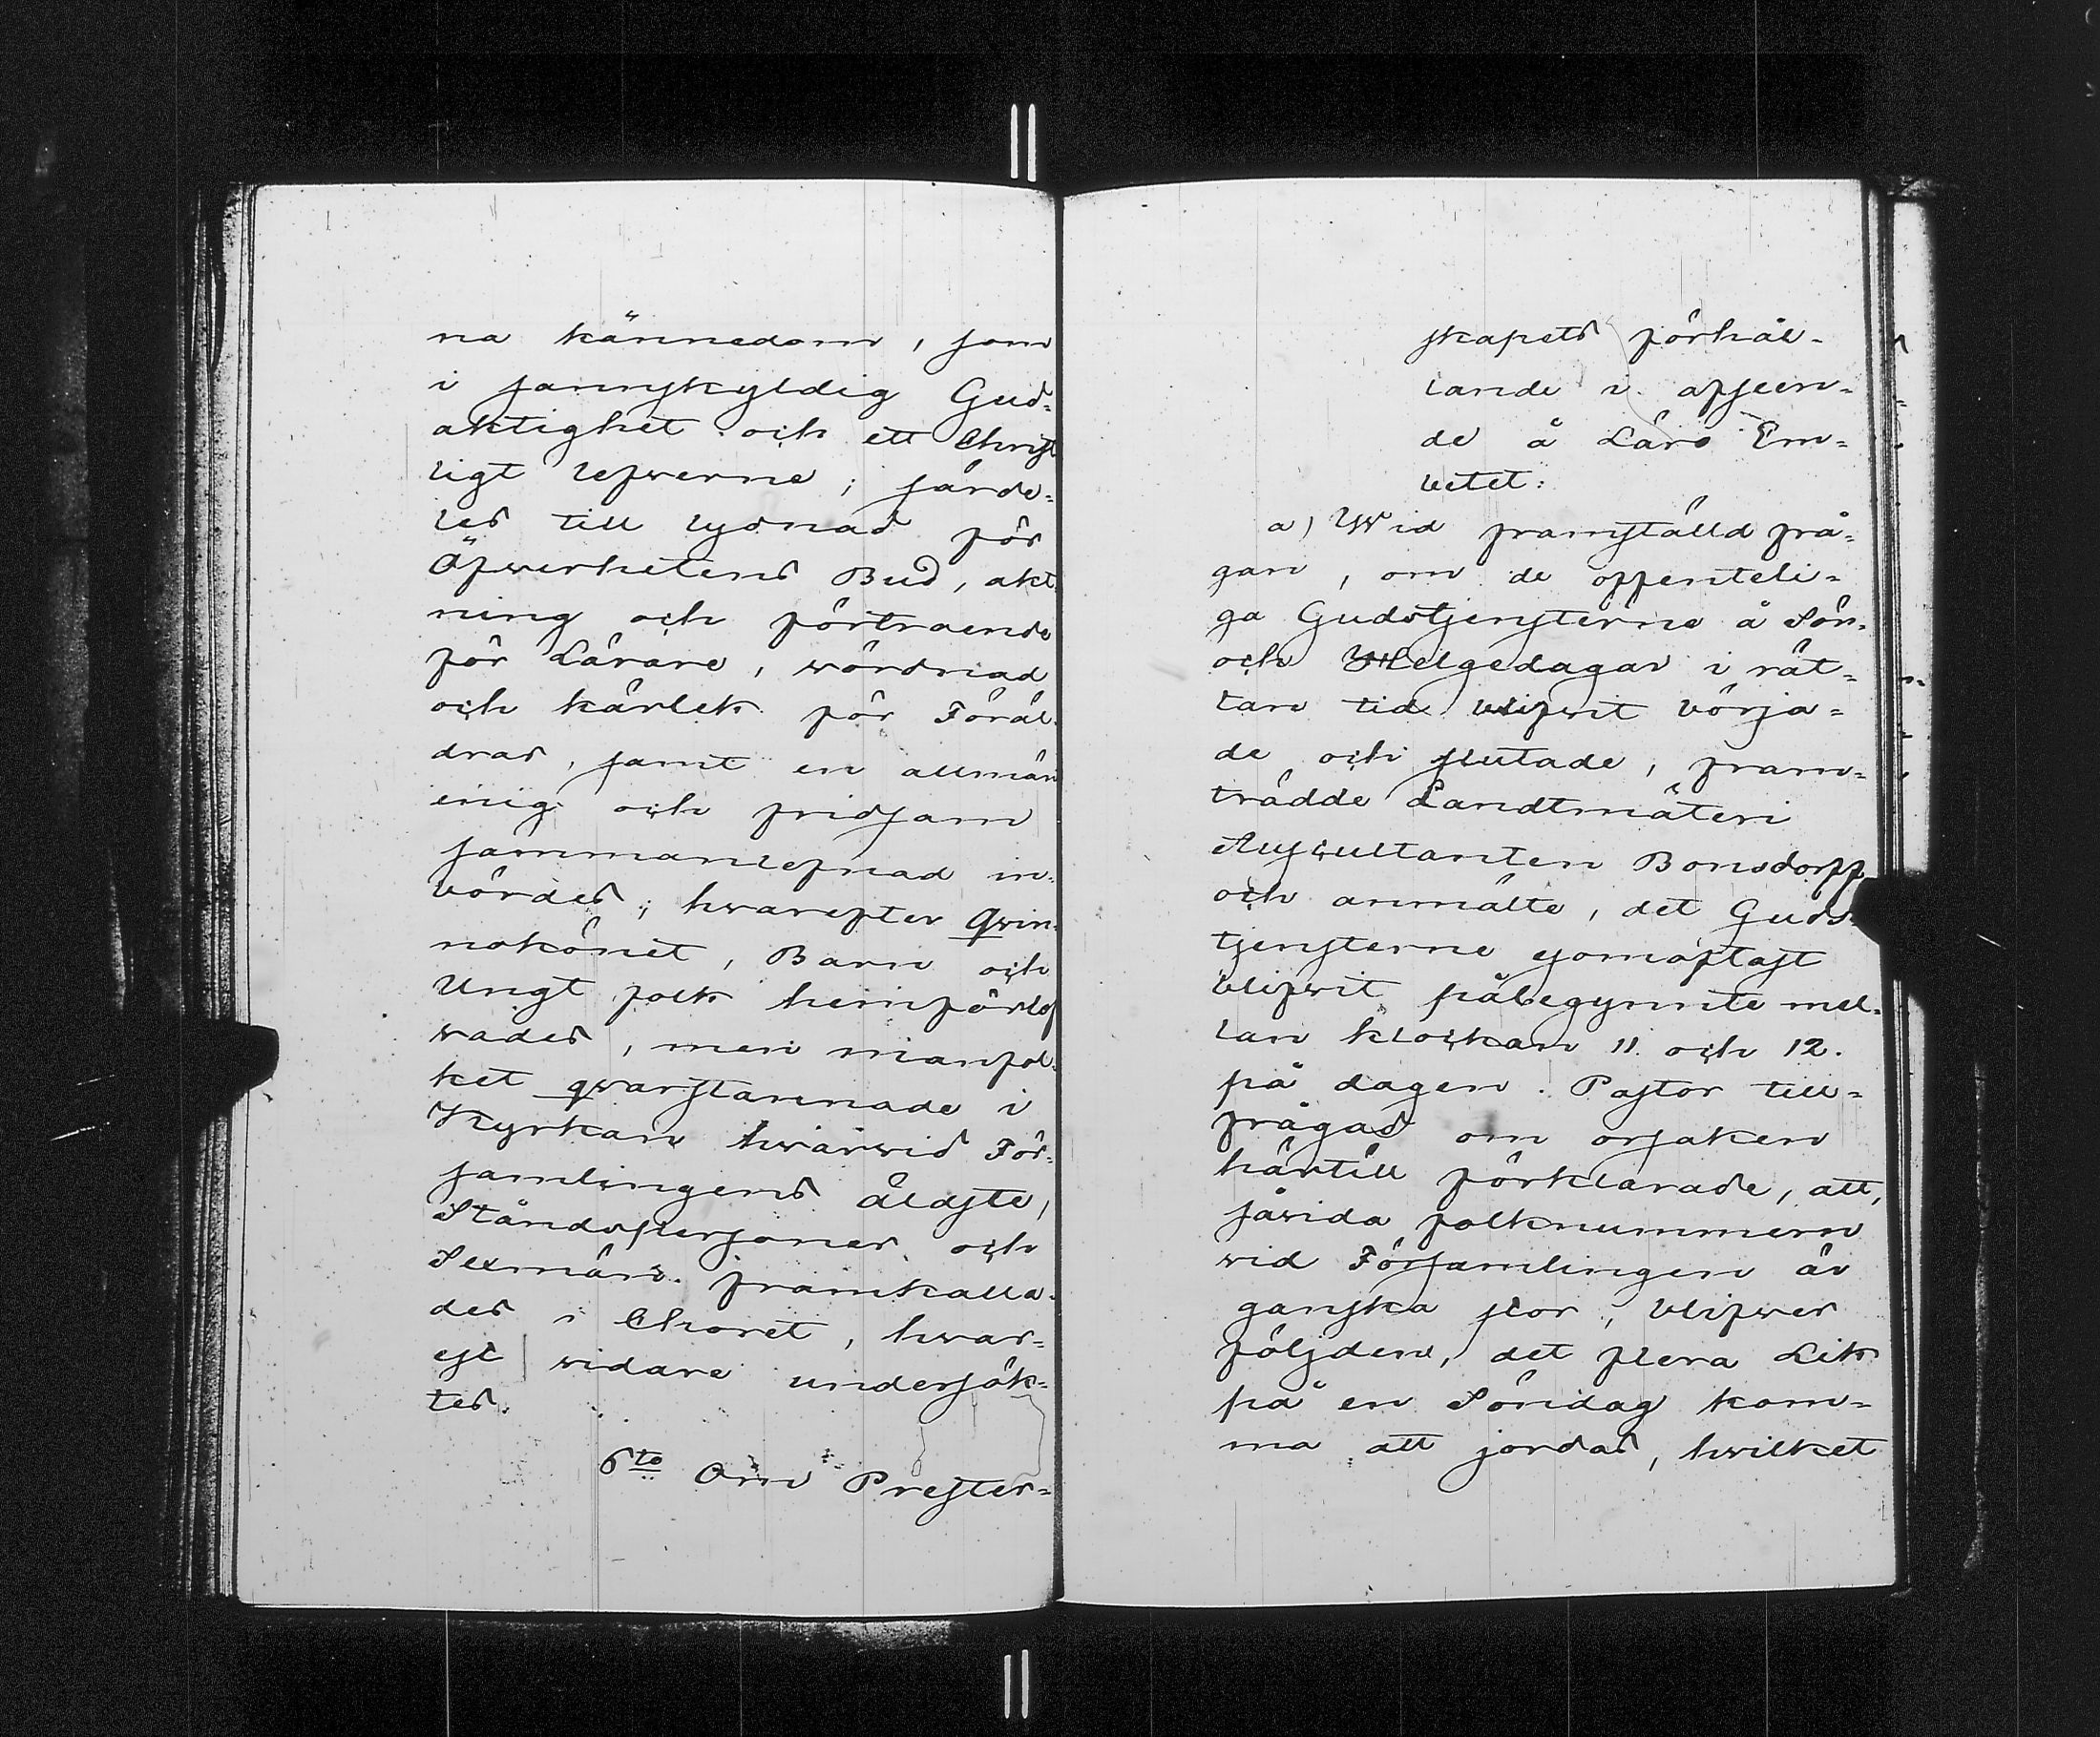 na kännedom, som
i sannskyldig Gud-
aktighet och ett Christ
ligt lefwerne; särde-
les till lydnad för
Öfwerhetens Bud, akt
ning och förtroende
för Lärare, wördnad
och kärlek för Föräl
drar, samt en allmän
enig och fridsam
sammanlefnad in-
bördes; hwarefter Qwin-
nokönet, Barn och
Ungt folk hemförlof
wades, men manfol-
ket qwarstannade i
Kyrkan hwarwid För-
samlingens äldste,
Ståndspersoner och
Sexmän framkalla-
des i Choret, hwar-
est widare undersök-
tes.
6to Om Prester-
skapets förhål-
lande i afseen-
de å Läro Em-
betet:
a) Wid framställd frå-
gan, om de offenteli-
ga Gudstjensterne å Sön-
och Helgedagar i rät-
tan tid blifwit börja-
de och slutade, fram-
trädde Landtmäteri
Auscultanten Bonsdorff
och anmälte, det Guds-
tjensterne esomoftast
blifwit påbegynnte mel-
lan klockan 11. och 12.
på dagen. Pastor till-
frågad om orsaken
härtill förklarade, att,
såwida folknummern
wid Församlingen är
ganska stor, blifwer
följden, det flera Lik
på en Söndag kom-
ma att jordas, hwilket